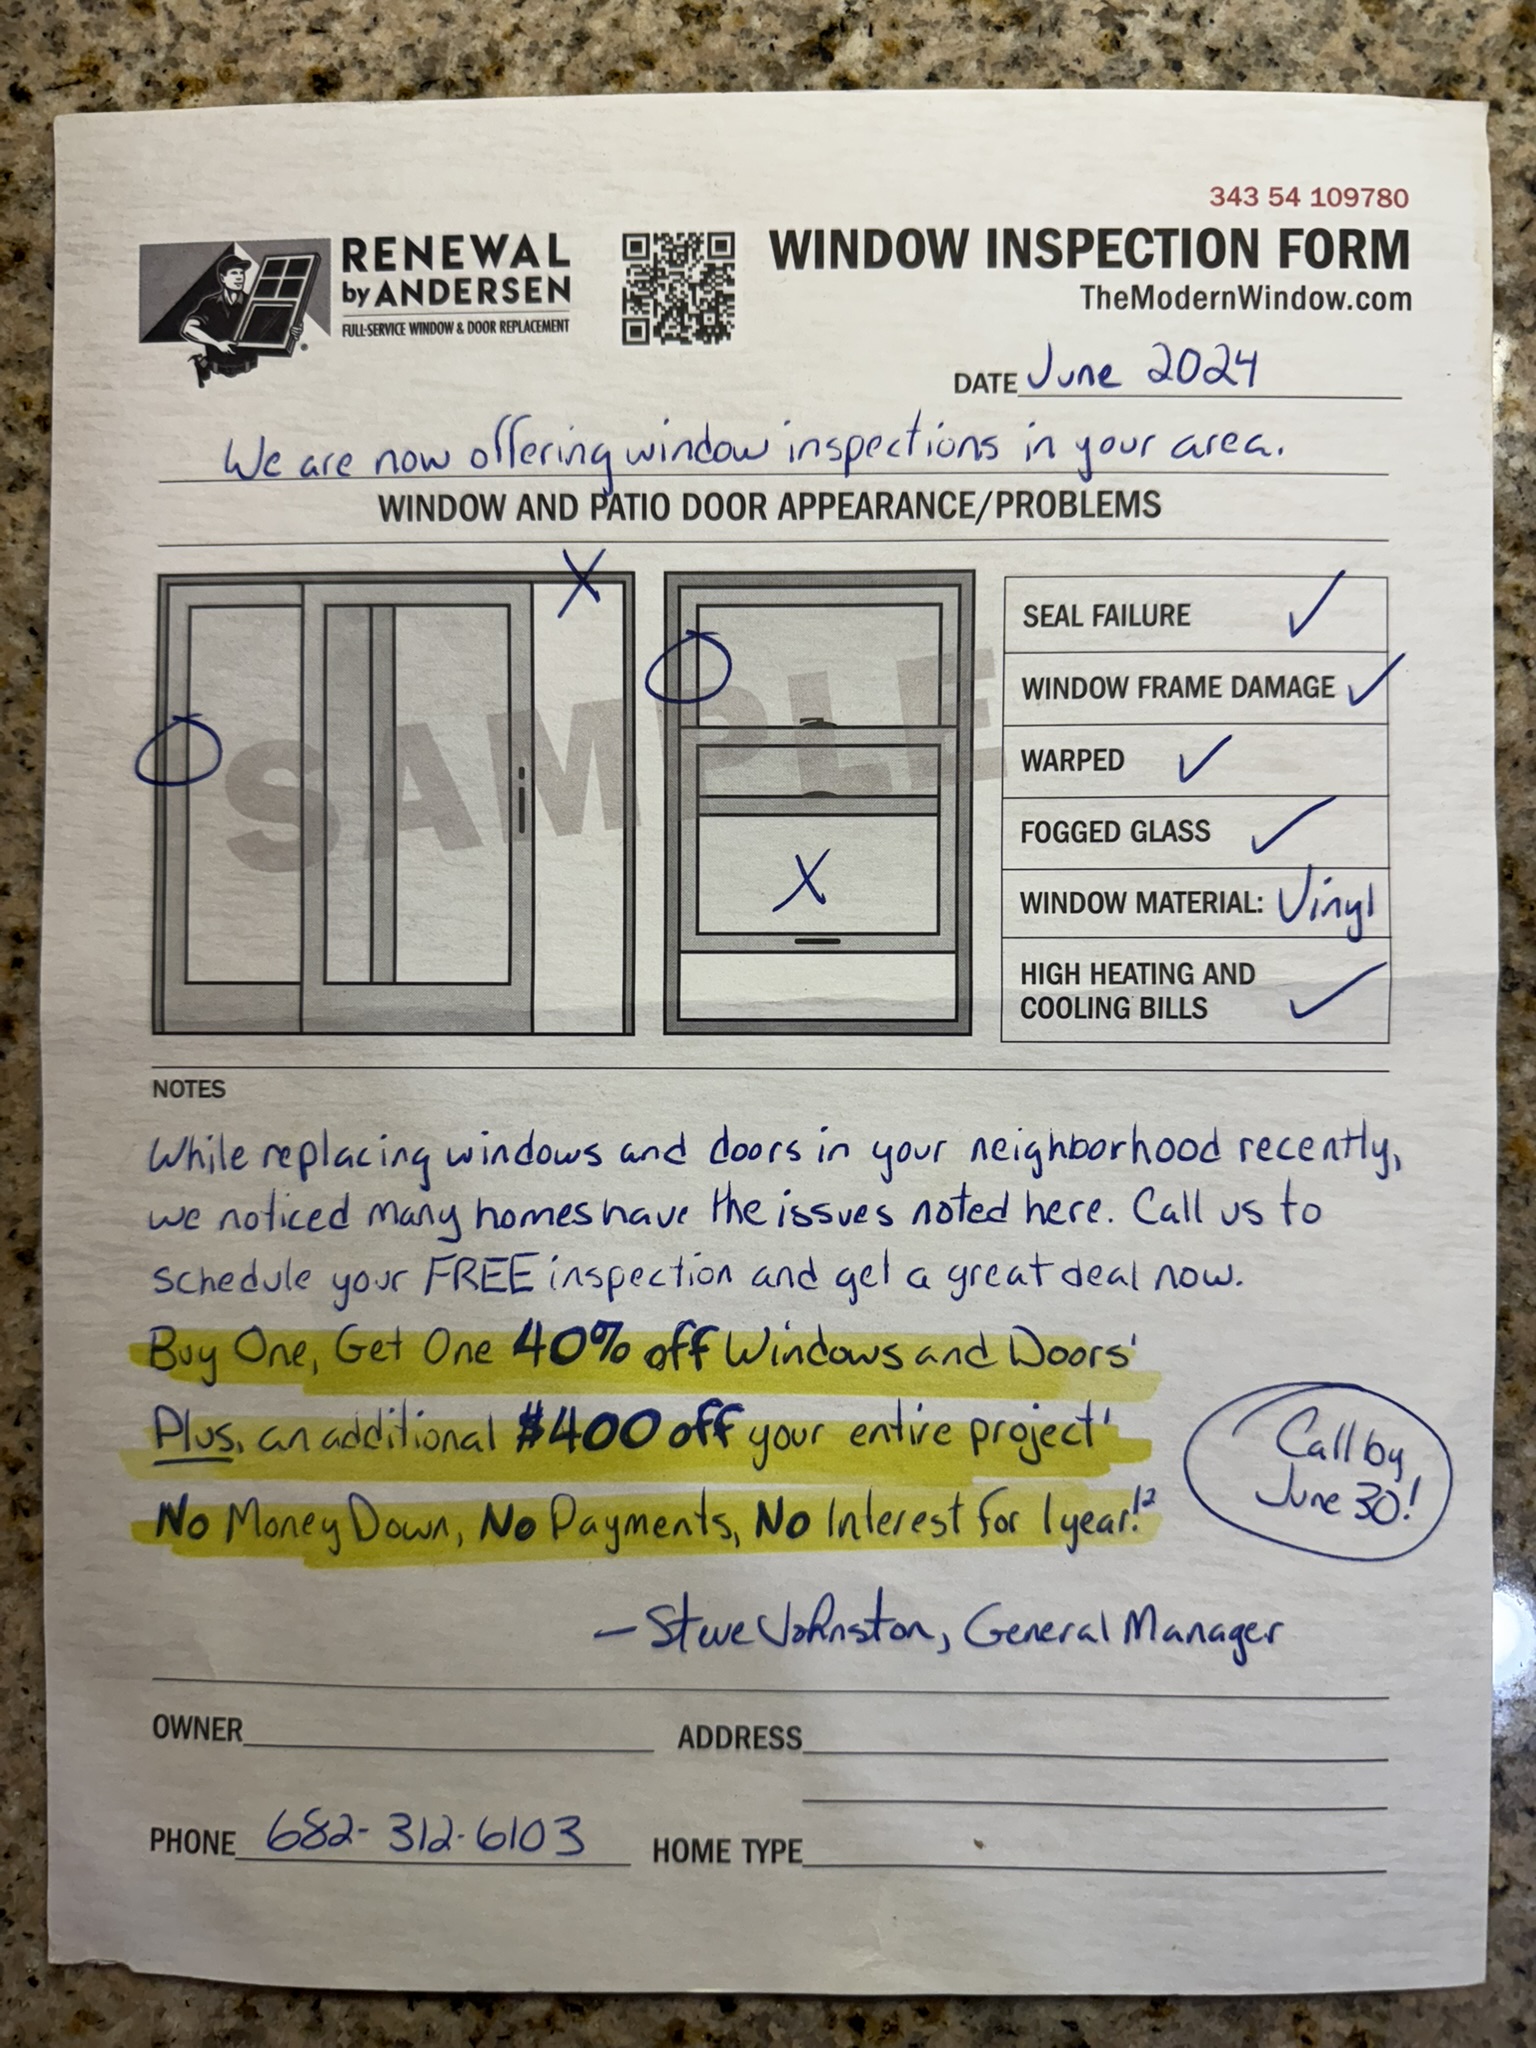 343 54 109780
RENEWAL
by ANDERSEN
FULL-SERVICE WINDOW & DOOR REPLACEMENT
WINDOW INSPECTION FORM
TheModernWindow.com
DATE June 2024
We are now offering window inspections in your area.
WINDOW AND PATIO DOOR APPEARANCE/PROBLEMS
X
X
SAMPLE
SEAL FAILURE ✓
WINDOW FRAME DAMAGE ✓
WARPED ✓
FOGGED GLASS ✓
WINDOW MATERIAL: Vinyl
HIGH HEATING AND
COOLING BILLS ✓
NOTES
While replacing windows and doors in your neighborhood recently,
we noticed many homes have the issues noted here. Call us to
schedule your FREE inspection and get a great deal now.
Buy One, Get One 40% off Windows and Doors¹
Plus, an additional $400 off your entire project¹
No Money Down, No Payments, No Interest for 1 year!¹²
Call by
June 30!
– Steve Johnston, General Manager
OWNER
ADDRESS
PHONE 682-312-6103
HOME TYPE